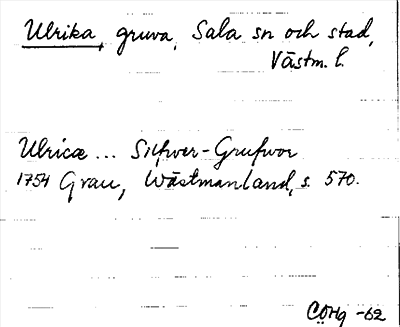 Ulrika, gruva, Sala sn och stad,
Västm. l.
Ulricæ ... Silfwer-Grufwor
1754 Grau, Wästmanland, s. 570.
CÖHg -62